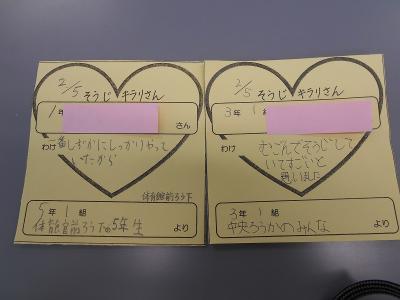 2/5 そうじ キラリさん
1年
さん
わけ
一番しずかにしっかりやって
いたから
体育館前ろう下
5年 1 組
体育館前ろう下の5年生
より
2/5 そうじ キラリさん
3年 1
わけ
むごんでそうじして
いてすごいと
思いました
3年 1 組
中央ろうかのみんな
より